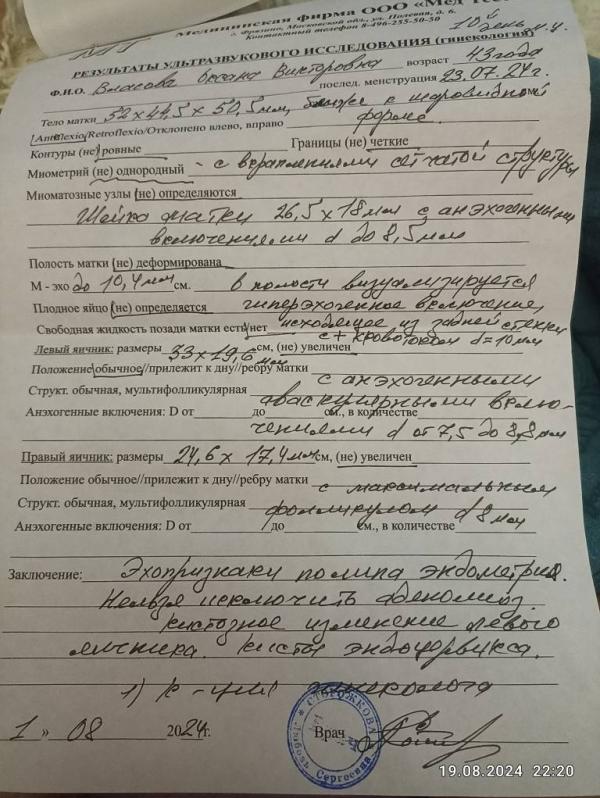 Медицинская фирма ООО «Мед
г. Фрязино, Московской обл., ул. Полевая, д. 6.
Контактный телефон 8-496-255-50-50
10й день м.ц.
РЕЗУЛЬТАТЫ УЛЬТРАЗВУКОВОГО ИССЛЕДОВАНИЯ (гинекология)
Ф.И.О. Власова Оксана Викторовна возраст 43 года
послед. менструация 23.07.24г.
Тело матки 52х44,5х50,5мм, ближе к шаровидной
Anteflexio/Retroflexio/Отклонено влево, вправо форме.
Контуры (не) ровные Границы (не) четкие
Миометрий (не) однородный - с вкраплениями сетчатой структуры
Миоматозные узлы (не) определяются
Шейка матки 26,5х18мм с анэхогенными
включениями d до 8,5мм
Полость матки (не) деформирована
М - эхо до 10,4мм см. в полости визуализируется
Плодное яйцо (не) определяется гиперэхогенное включение,
Свободная жидкость позади матки есть/нет исходящее из задней стенки
с + кровотоком d=10мм
Левый яичник: размеры 33х19,6мм см, (не) увеличен
Положение обычное//прилежит к дну//ребру матки с анэхогенными
Структ. обычная, мультифолликулярная аваскулярными вклю-
Анэхогенные включения: D от до см., в количестве
чениями d от 7,5 до 8,8мм
Правый яичник: размеры 24,6х17,4мм см, (не) увеличен
Положение обычное//прилежит к дну//ребру матки с максимальным
Структ. обычная, мультифолликулярная фолликулом d 8мм
Анэхогенные включения: D от до см., в количестве
Заключение: Эхопризнаки полипа эндометрия.
Нельзя исключить аденомиоз.
Кистозное изменение левого
яичника. Кисты эндоцервикса.
1) К-ция гинеколога
1 » 08 2024г. Врач
СТОРОЖКОВА
Сергеевна
19.08.2024 22:20